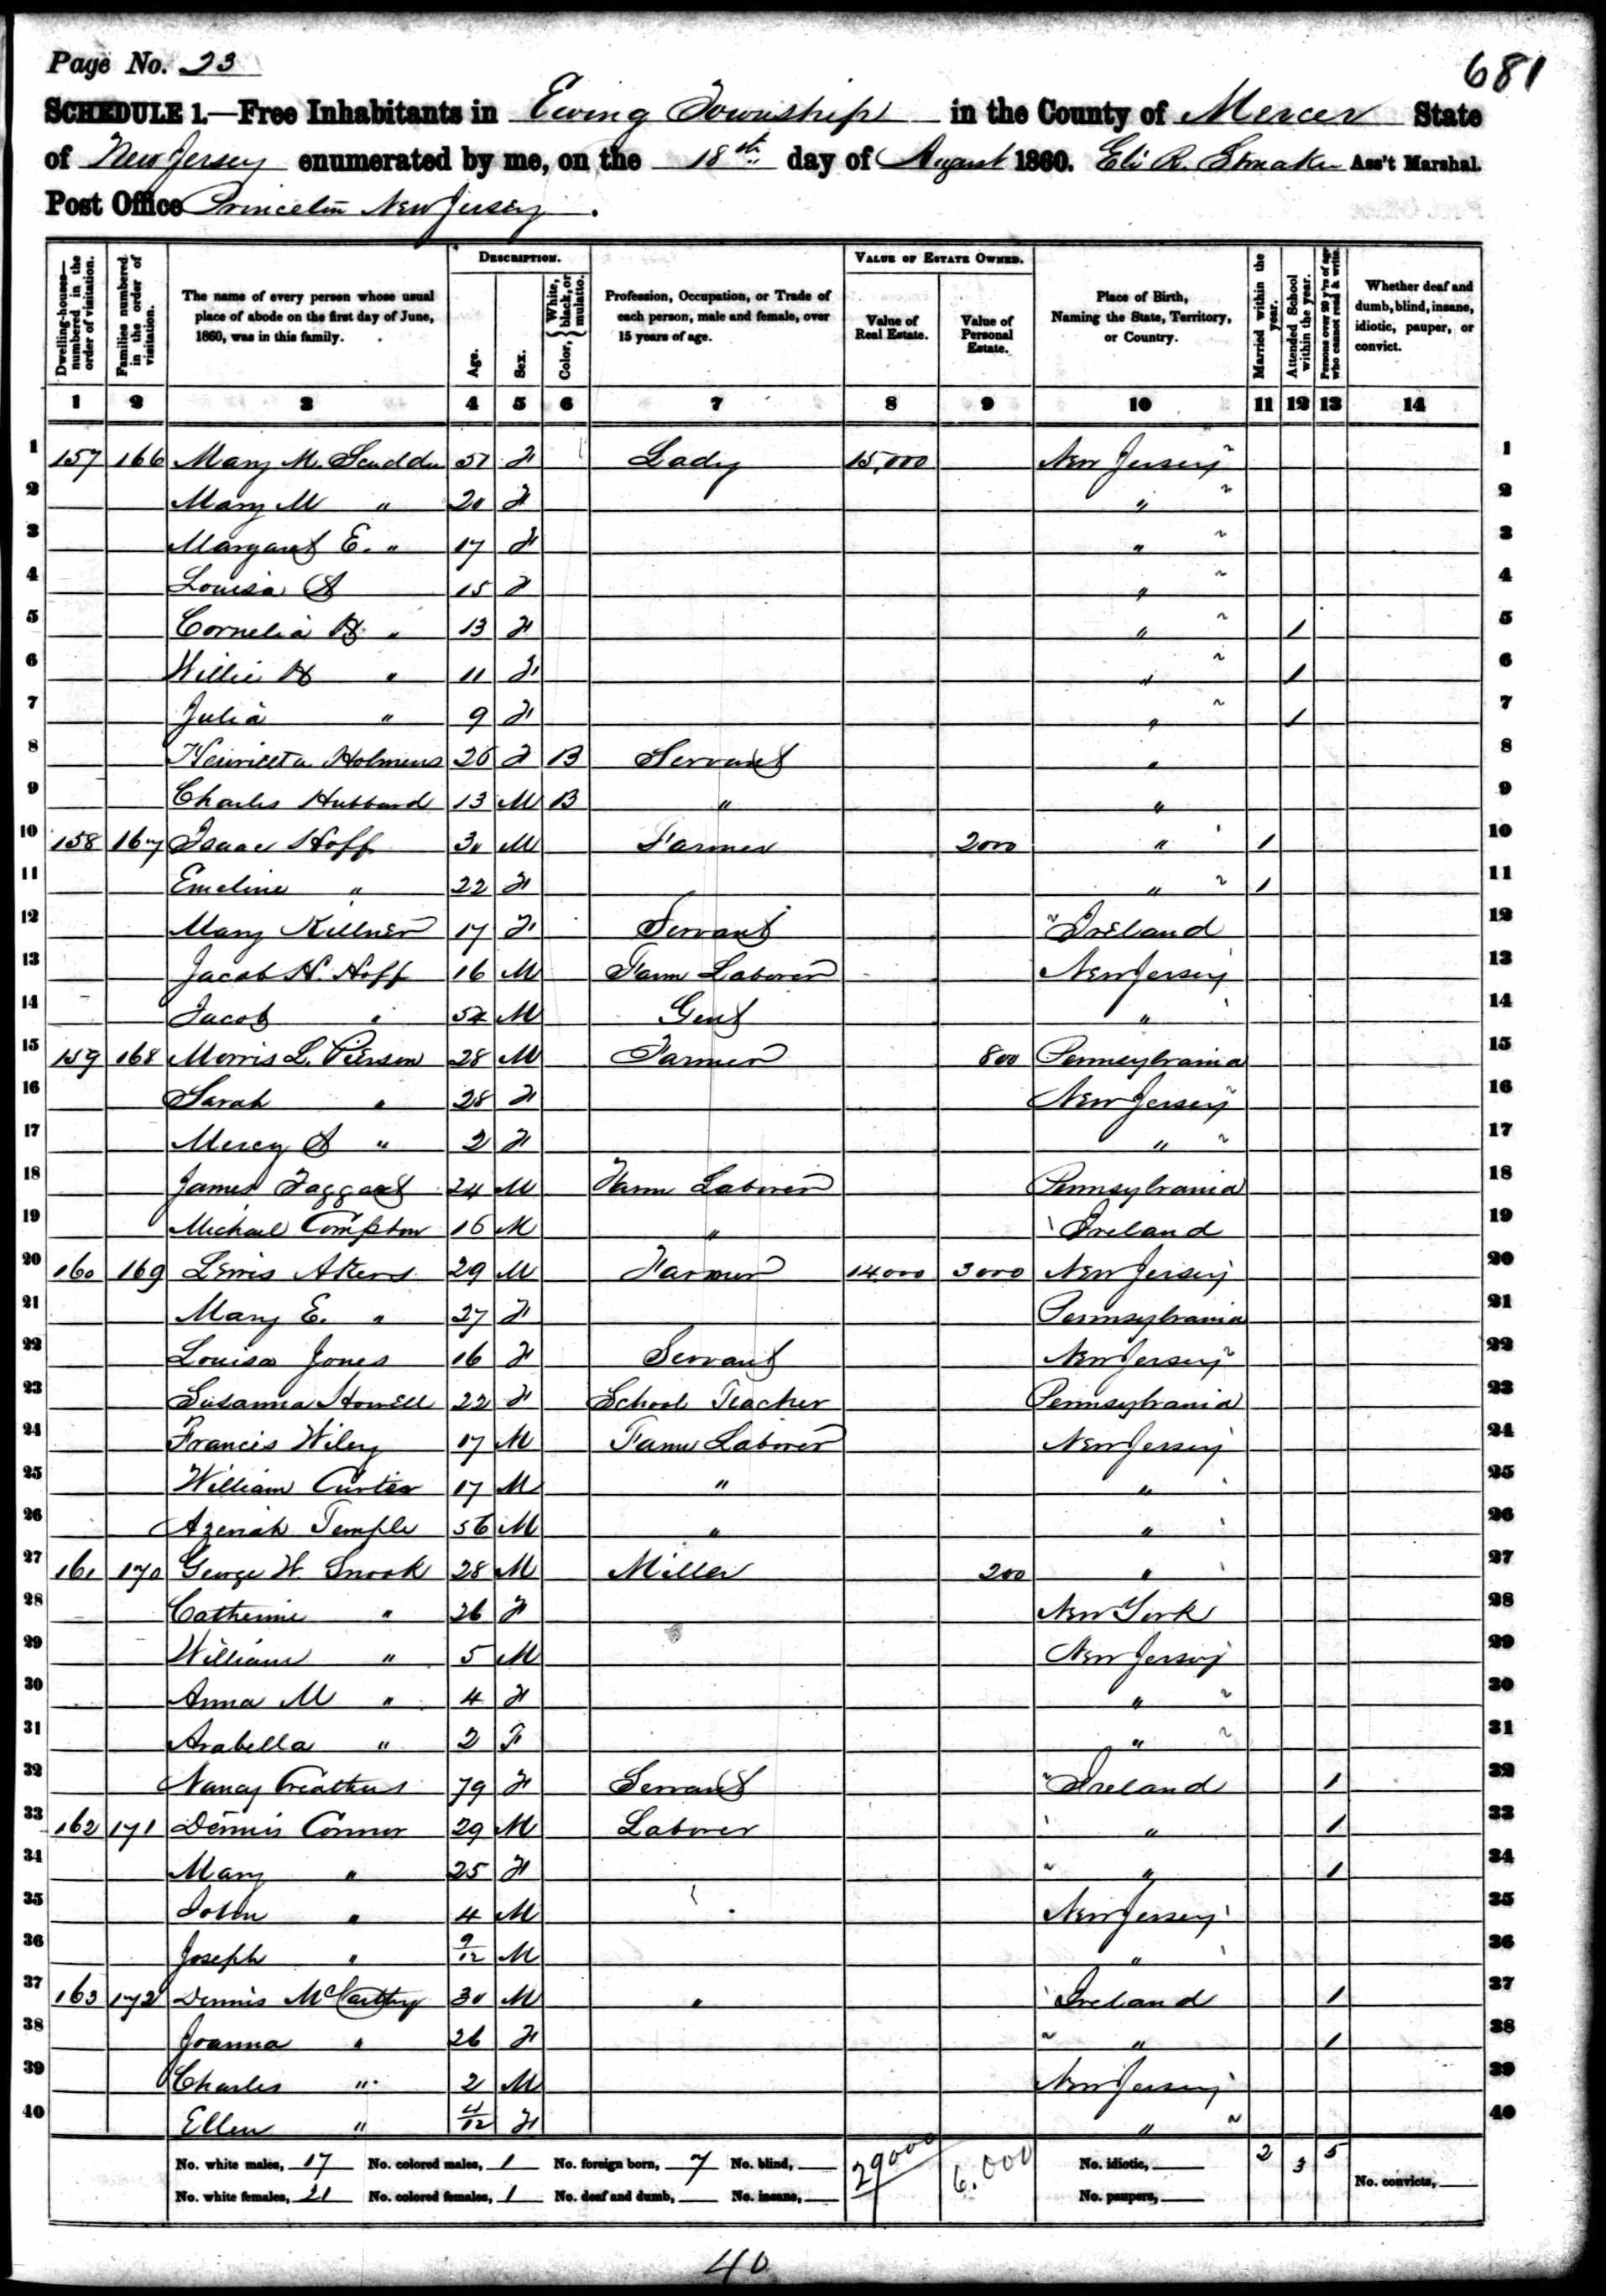 Page No. 23
681
SCHEDULE 1.—Free Inhabitants in Ewing Township in the County of Mercer State
of New Jersey enumerated by me, on the 18th day of August 1860. Eli R. Ass't Marshal.
Post Office Princeton New Jersey.
DESCRIPTION. VALUE OF ESTATE OWNED.
Dwelling-houses—numbered in the order of visitation. Families numbered in the order of visitation. The name of every person whose usual place of abode on the first day of June, 1860, was in this family. Age. Sex. Color, { White, black, or mulatto. Profession, Occupation, or Trade of each person, male and female, over 15 years of age. Value of Real Estate. Value of Personal Estate. Place of Birth, Naming the State, Territory, or Country. Married within the year. Attended School within the year. Persons over 20 y'rs of age who cannot read & write. Whether deaf and dumb, blind, insane, idiotic, pauper, or convict.
1 2 3 4 5 6 7 8 9 10 11 12 13 14
1 157 166 Mary M. Scudder 51 F Lady 15,000 New Jersey 1
2 Mary M " 20 F " 2
3 Margaret E. " 17 F " 3
4 Louisa A 15 F " 4
5 Cornelia B. " 13 F " 1 5
6 Willie H " 11 F " 1 6
7 Julia " 9 F " 1 7
8 Henrietta Holmens 26 F B Servant " 8
9 Charles Hubbard 13 M B " " 9
10 158 167 Isaac Hoff 30 M Farmer 2000 " 1 10
11 Emeline " 22 F " 1 11
12 Mary Killner 17 F Servant Ireland 12
13 Jacob H. Hoff 16 M Farm Laborer New Jersey 13
14 Jacob " 54 M Gent " 14
15 159 168 Morris L. Pierson 28 M Farmer 800 Pennsylvania 15
16 Sarah " 28 F New Jersey 16
17 Mercy A " 2 F " 17
18 James Taggart 24 M Farm Laborer Pennsylvania 18
19 Michael Compton 16 M " Ireland 19
20 160 169 Lewis Akers 29 M Farmer 14,000 3000 New Jersey 20
21 Mary E. " 27 F Pennsylvania 21
22 Louisa Jones 16 F Servant New Jersey 22
23 Susanna Howell 22 F School Teacher Pennsylvania 23
24 Francis Wiley 17 M Farm Laborer New Jersey 24
25 William Curtis 17 M " " 25
26 Azeriah Temple 56 M " " 26
27 161 170 George W. Snook 28 M Miller 200 " 27
28 Catherine " 26 F New York 28
29 William " 5 M New Jersey 29
30 Anna M " 4 F " 30
31 Arabella " 2 F " 31
32 Nancy 79 F Servant Ireland 1 32
33 162 171 Dennis Connor 29 M Laborer " 1 33
34 Mary " 25 F " 1 34
35 John " 4 M New Jersey 35
36 Joseph " 9/12 M " 36
37 163 172 Dennis McCarthy 30 M " Ireland 1 37
38 Joanna " 26 F " 1 38
39 Charles " 2 M New Jersey 39
40 Ellen " 4/12 F " 40
No. white males, 17 No. colored males, 1 No. foreign born, 7 No. blind, 29000 6,000 No. idiotic, 2 3 5
No. white females, 21 No. colored females, 1 No. deaf and dumb, No. insane, No. paupers, No. convicts,
40